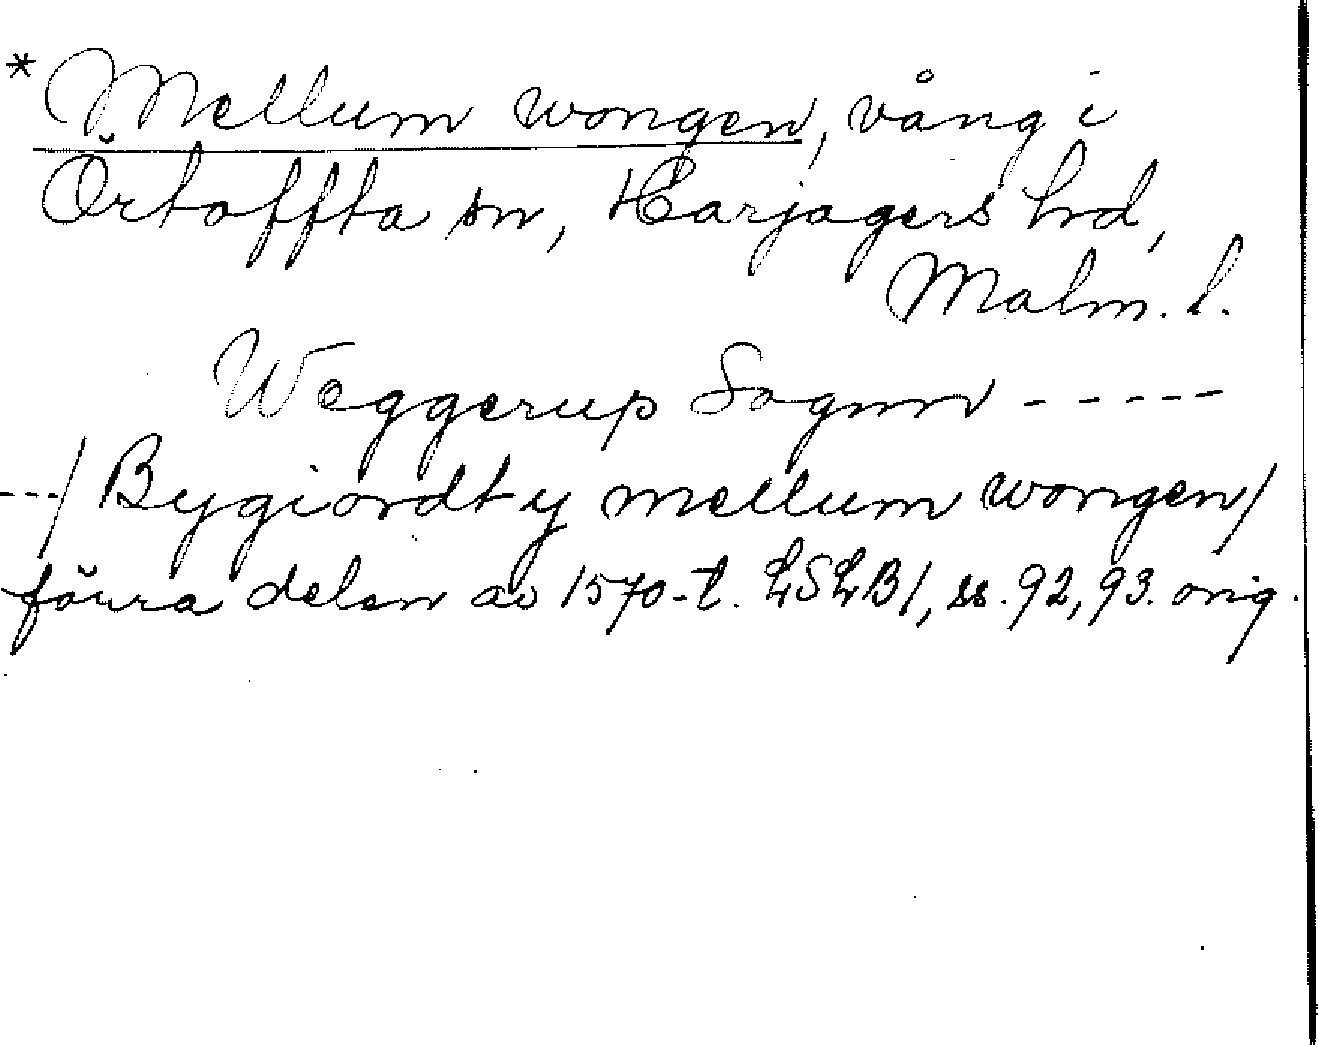 *Mellum wongen, vång i
Örtoffta sn, Harjagers hd,
Malm. l.
Weggerup Sognn -----
---/ Bygiordt y mellum wongen/
förra delen av 1570-t. LSLB/, ss. 92, 93. orig.